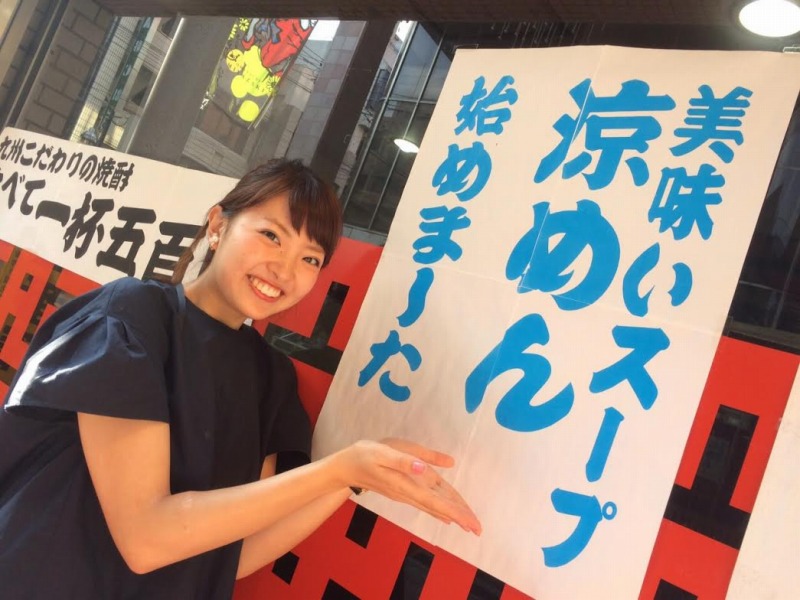 美味いスープ
涼めん
始めまーた
九州こだわりの焼酎
べて一杯五百